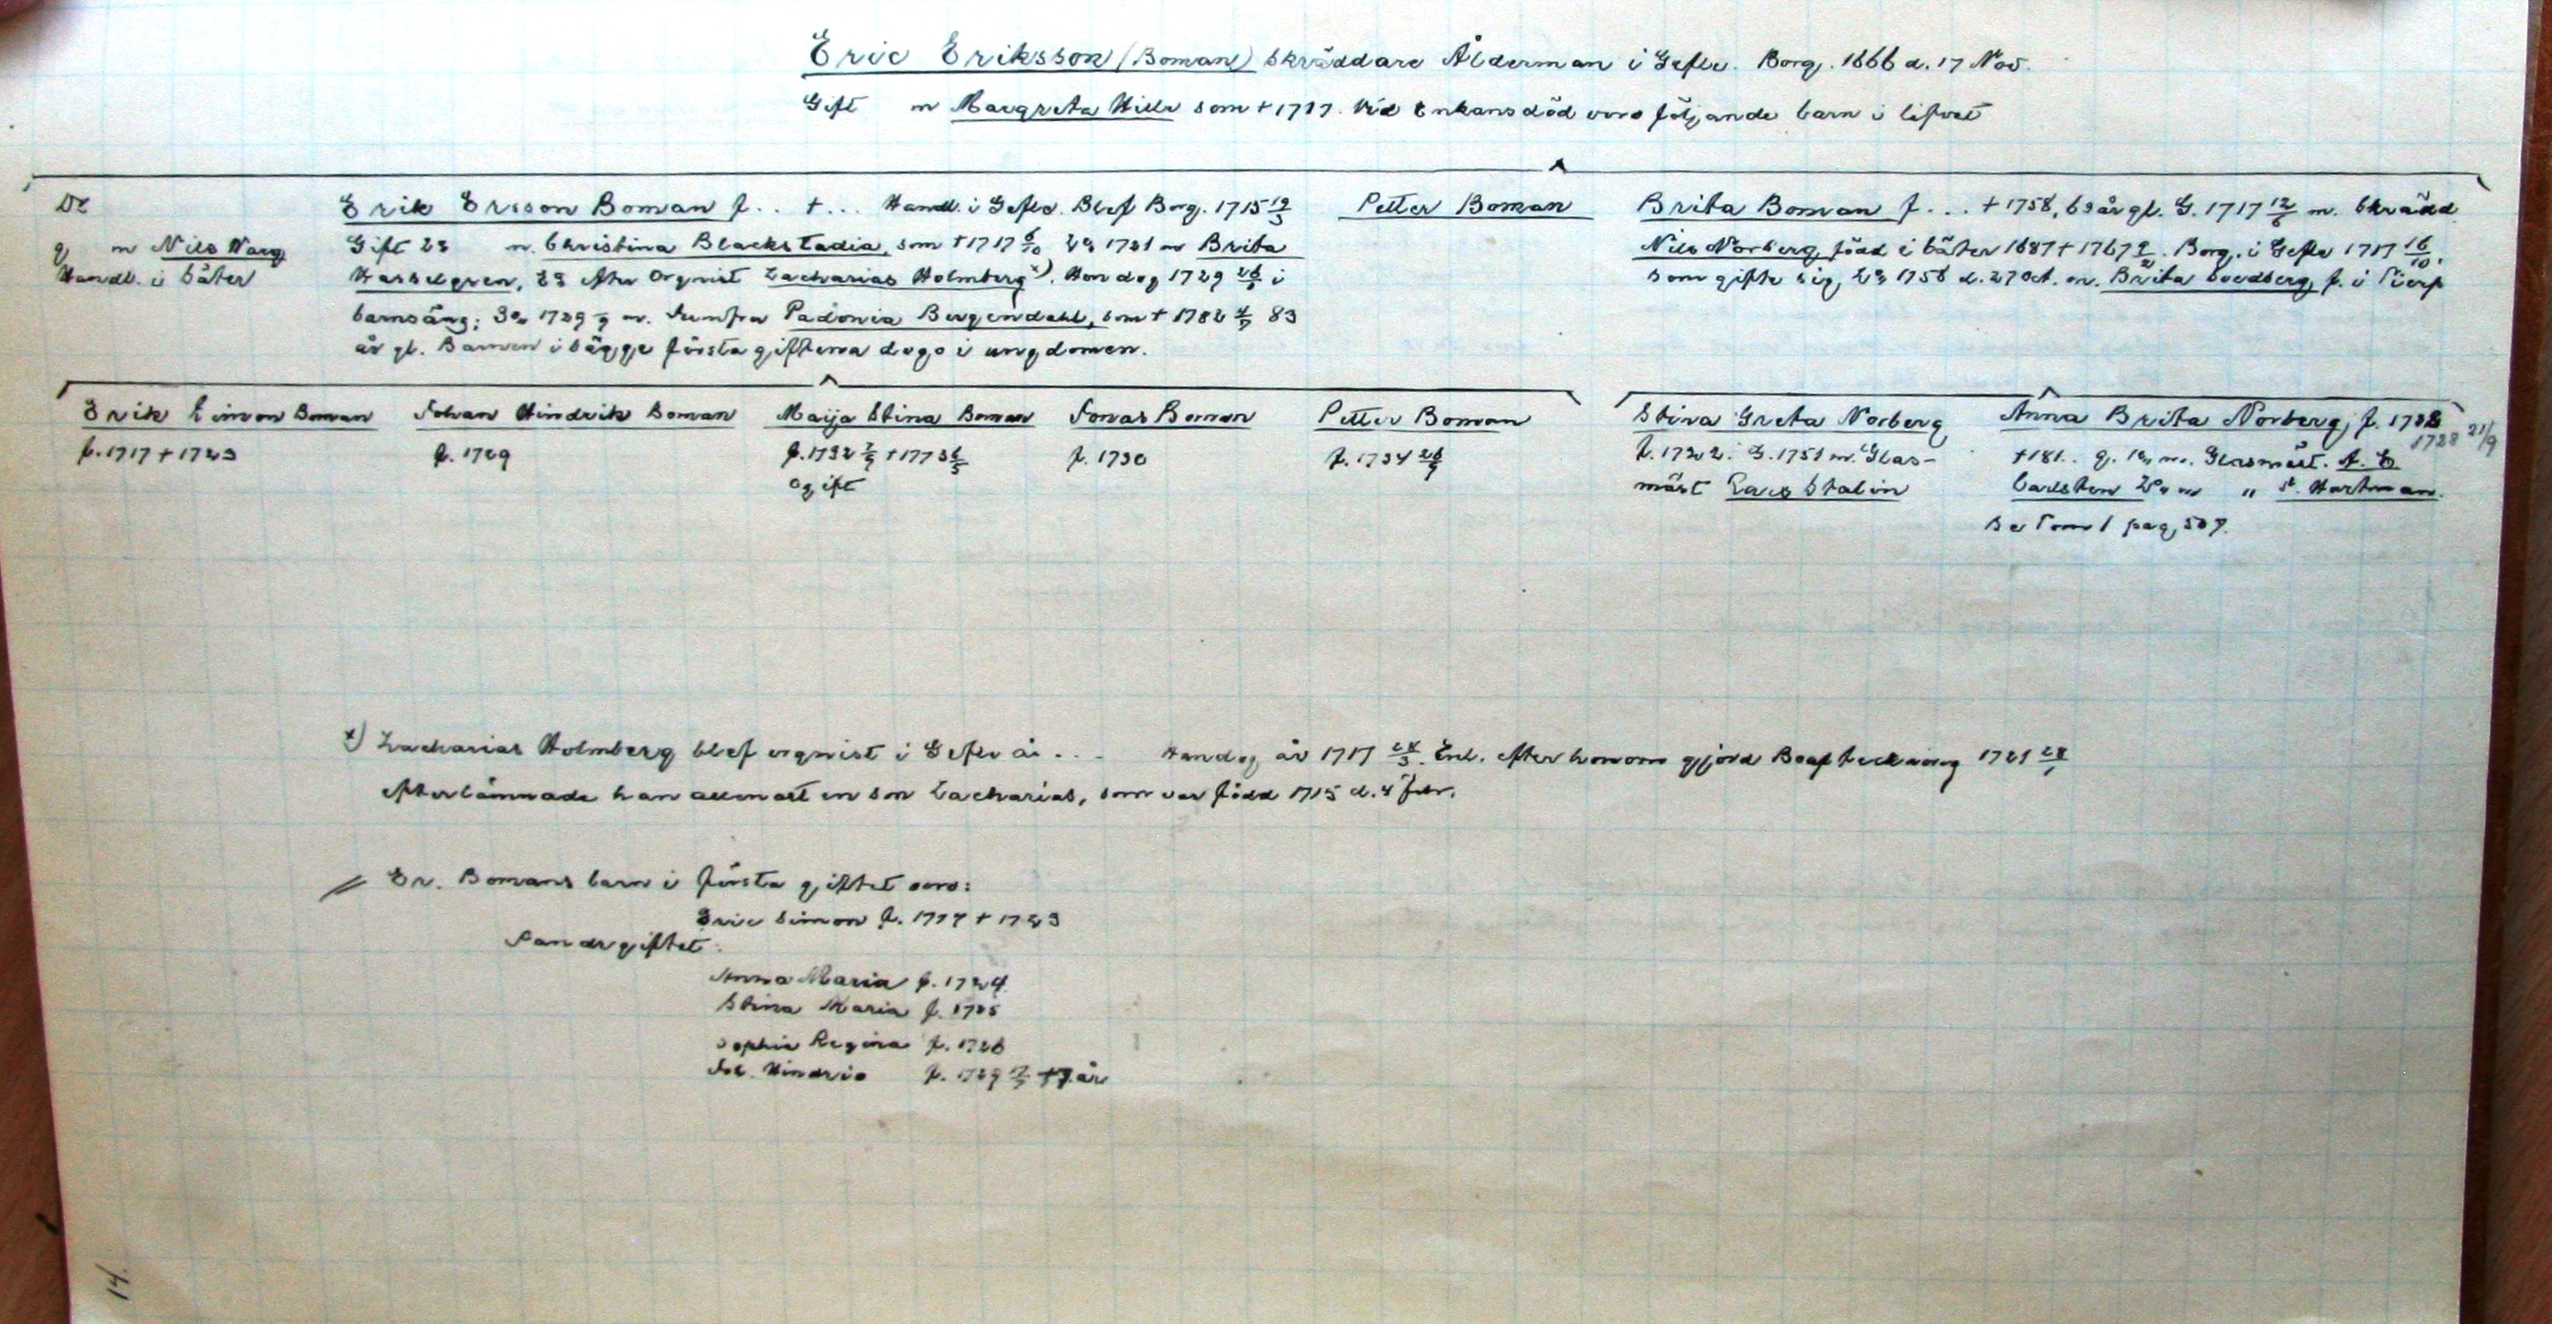 Eric Eriksson (Boman) Skräddare Ålderman i Gefle. Borg. 1666 d. 17 Nov.
Gift m Margreta Hille som † 1717. Vid Enkans död voro följande barn i lifvet
De
g m Nils Warg
Handl. i Säter
Erik Ersson Boman f. . † . . . Handl. i Gefle. Blef Borg. 1715 19/3
Gift m. Christina Blackstadia, som † 1717 6/10 1721 m Brita
Hasselgren, efter Orgnist Zacharias Holmberg x). Hon dog 1729 i
barnsäng; 3o 1729 m. Jumfru Padonia Bergendahl, som † 1782 4/7 83
år gl. Barnen i bägge första giftena dogo i ungdomen.
Petter Boman
Brita Boman f. . . . † 1758, 69 år gl. G. 1717 12/6 m. Skrädd
Nils Norberg, född i Säter 1687 † 1767 9/2. Borg. i Gefle 1717 16/10.
som gifte sig 1758 d. 27 Oct. m. Brita Svedberg, f. i Tierp
Erik Simon Boman
f. 1717 † 1723
Johan Hindrik Boman
f. 1729
Maija Stina Boman
f. 1732 2/9 † 1773 6/5
Ogift
Jonas Boman
f. 1730
Petter Boman
f. 1734 26/9
Stina Greta Norberg
G. 1751 m. Glas-
mäst Lars Stalin
Anna Brita Norberg, f.
1728 21/9
† 181. . g. 1o m. Glasmäst. A. C.
Carlsten 2o m " Hartman.
Se Tom 1 pag. 507.
x) Zacharias Holmberg blef orgnist i Gefle år . . . Han dog år 1717 28/3. Enl. efter honom gjord Bouppteckning 1721 28/1
efterlämnade han allenast en son Zacharias, som var född 1715 d. 4 Febr.
// Er. Bomans barn i första giftet voro:
Eric Simon f. 1717 † 1723
I andr giftet:
Anna Maria f. 1724
Stina Maria f. 1725
Sophia Regina f. 1726
Joh. Hindric f. 1729 † 7 år
14.